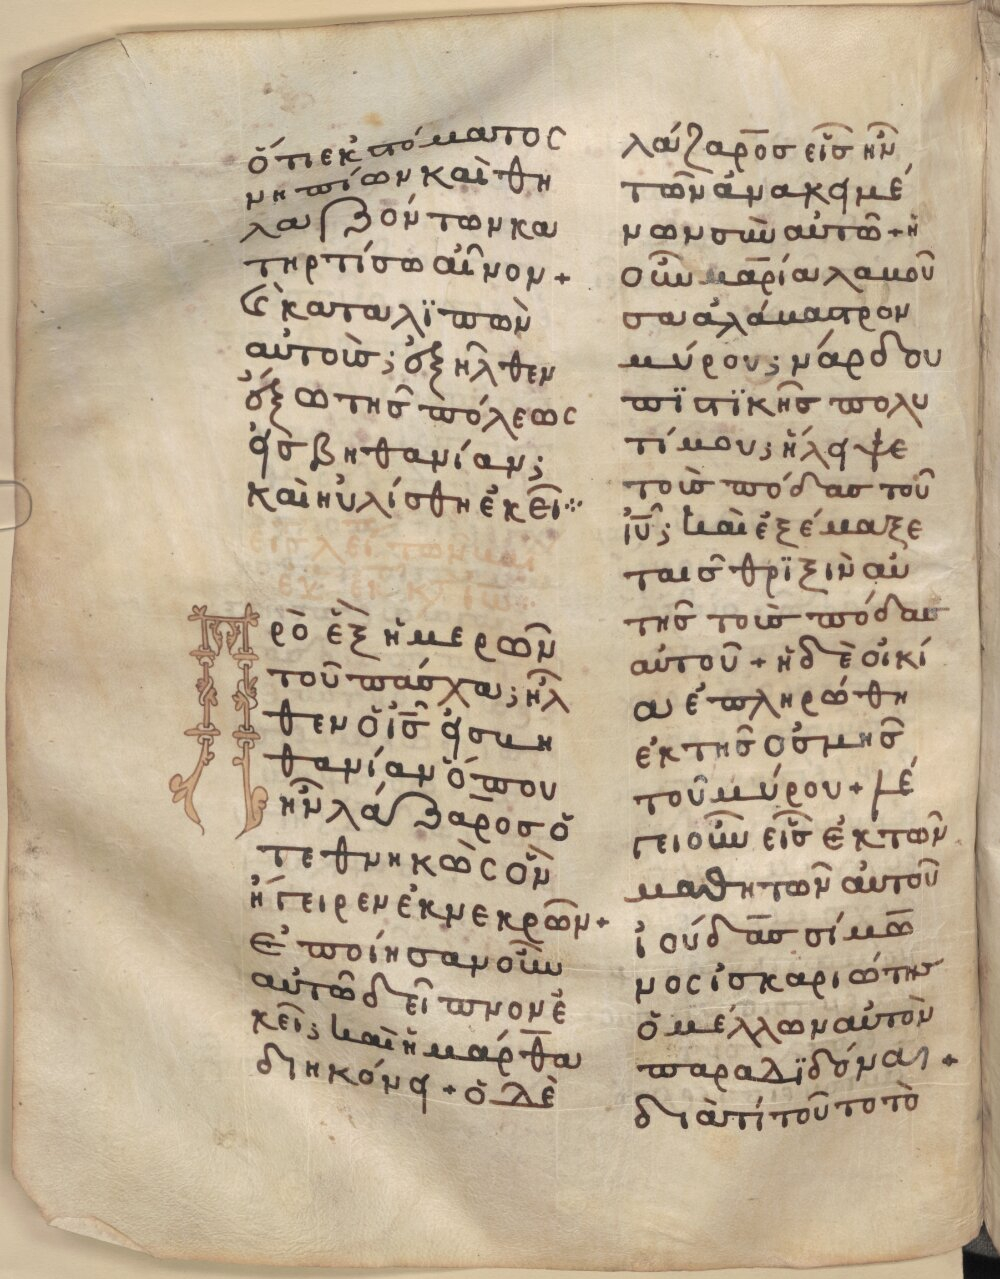 ὅτι ἐκ στόματος
νηπίων καὶ θη
λαζόντων κα
τηρτίσω αἶνον +
Ὲ καταλϊπὼν
αὐτοὺς; ἐξῆλθεν
ἔξω τῆς πόλεως
εἰς βηθανίαν;
καὶ ηὐλίσθη ἐκεῖ⁘
εἰς λει των και
εκ ἐκ κ ἰω⁘
Πρὸ ἓξ ἡμερῶν
τοῦ πάσχα; ἦλ
θεν ὁ ἰς̅ εἰς βη
θανίαν ὅπου
ἦν λάζαρος ὁ
τεθνηκὼς ὃν
ἤγειρεν ἐκ νεκρῶν +
Ἐποίησαν οὖν
αὐτῶ δεῖπνον ἐ
κεῖ; καὶ ἡ μάρθα
διηκόνει + ὁ λὲ
λάζαρος εἷς ἦν
τῶν ἀνακειμέ
νων σὺν αὐτῶ + ἡ
οὖν μαρία λαμοῦ
σα ἀλάμαστρον
μύρου; νάρδου
πϊστϊκῆς πολυ
τίμου; ἤλειψε
τοὺς πόδας τοῦ
ἰυ̅; καὶ ἐξέμαξε
ταις θρϊξὶν αὐ
τῆς τοὺς πόδας
αὐτοῦ + ἡ δὲ οἰκί
α ἐπληρώθη
ἐκ τῆς ὀσμῆς
τοῦ μύρου + λέ
γει οὖν εἷς ἐκ τῶν
μαθητῶν αὐτοῦ
ἰούδας σίμω
νος ἰσκαριώτης
ὁ μέλλων αὐτὸν
παραλϊδόναι +
διὰτί τοῦτο τὸ